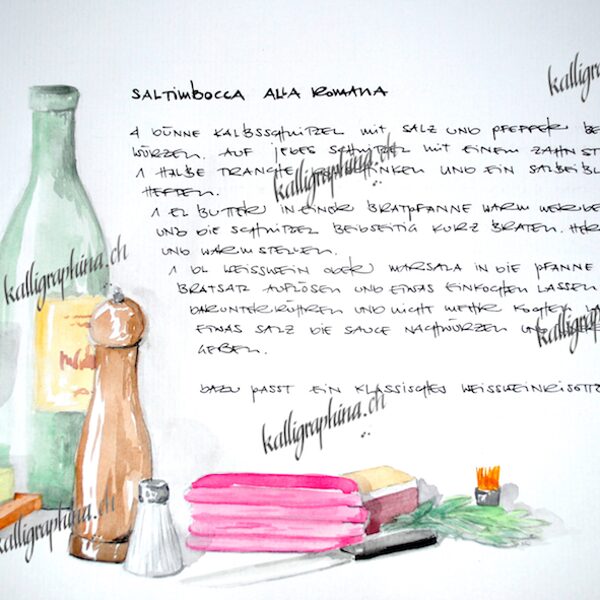 SALTIMBOCCA ALLA ROMANA
4 DÜNNE KALBSSCHNITZEL MIT SALZ UND PFEFFER BE
WÜRZEN. AUF JEDES SCHNITZEL MIT EINEM ZAHNST
1 HALBE TRANCHE SCHINKEN UND EIN SALBEIBL
HEFTEN.
1 EL BUTTER IN EINER BRATPFANNE WARM WERDE
UND DIE SCHNITZEL BEIDSEITIG KURZ BRATEN. HER
UND WARM STELLEN.
1 DL WEISSWEIN ODER MARSALA IN DIE PFANNE
BRATSATZ AUFLÖSEN UND ETWAS EINKOCHEN LASSEN
DARUNTERRÜHREN UND NICHT MEHR KOCHEN
ETWAS SALZ DIE SAUCE NACHWÜRZEN UN
GEBEN.
DAZU PASST EIN KLASSISCHES WEISSWEINRISOTT
kalligra
kalligraphina.ch
kalligraphina.ch
kalligraph
kalligraphina.ch
kalligraphina.ch